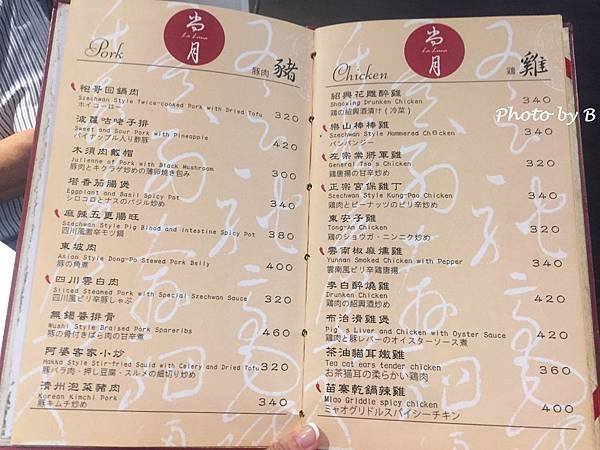 当月
La Luna
Pork
豚肉 豬
袍哥回鍋肉
Szechwan Style Twice-cooked Pork with Dried Tofu 320
ホイコーロー
菠蘿咕咾子排
Sweet and Sour Pork with Pineapple 420
パイナップル入り酢豚
木須肉戴帽
Julienne of Pork with Black Mushroom 300
豚肉とキクラゲ炒めの薄卵焼き包み
塔香茄腸煲
Eggplant and Basil Spicy Pot 340
シロコロとナスのバジル炒め
麻辣五更腸旺
Szechwan Style Pig Blood and Intestine Spicy Pot 380
四川風激辛モツ鍋
東坡肉
Asian Style Dong-Po Stewed Pork Belly 400
豚の角煮
四川雲白肉
Sliced Steamed Pork with Special Szechwan Sauce 320
四川風ピリ辛豚しゃぶ
無錫醬排骨
Wushi Style Braised Pork Spareribs 460
豚の骨付きばら肉の甘辛煮
阿婆客家小炒
Hakka Style Stir-fried Squid with Celery and Dried Tofu 320
豚バラ肉・押し豆腐・スルメの細切り炒め
清州泡菜豬肉
Korean Kimchi Pork 340
豚キムチ炒め
当月
La Luna
Chicken
鶏 雞
紹興花雕醉雞
Shaoxing Drunken Chicken 340
鶏の紹興酒漬け（冷菜）
樂山棒棒雞
Szechwan Style Hammered Chicken 340
バンバンジー
左宗棠將軍雞
General Tso's Chicken 320
鶏唐揚げの甘辛炒め
正宗宮保雞丁
Szechwan Style Kung-Pao Chicken 340
鶏肉とピーナッツのピリ辛炒め
東安子雞
Tong-An Chicken 320
鶏のショウガ・ニンニク炒め
雲南椒麻燻雞
Yunnan Smoked Chicken with Pepper 340
雲南風ピリ辛鶏唐揚
李白醉燒雞
Drunken Chicken 420
鶏肉の紹興酒炒め
布治清雞煲
Pig's Liver and Chicken with Oyster Sauce 420
鶏肉と豚レバーのオイスターソース煮
茶油貓耳嫩雞
Tea cat ears tender chicken 360
お茶猫耳の柔らかい鶏肉
苗寨乾鍋辣雞
Miao Griddle spicy chicken 400
ミャオグリドルスパイシーチキン
Photo by B